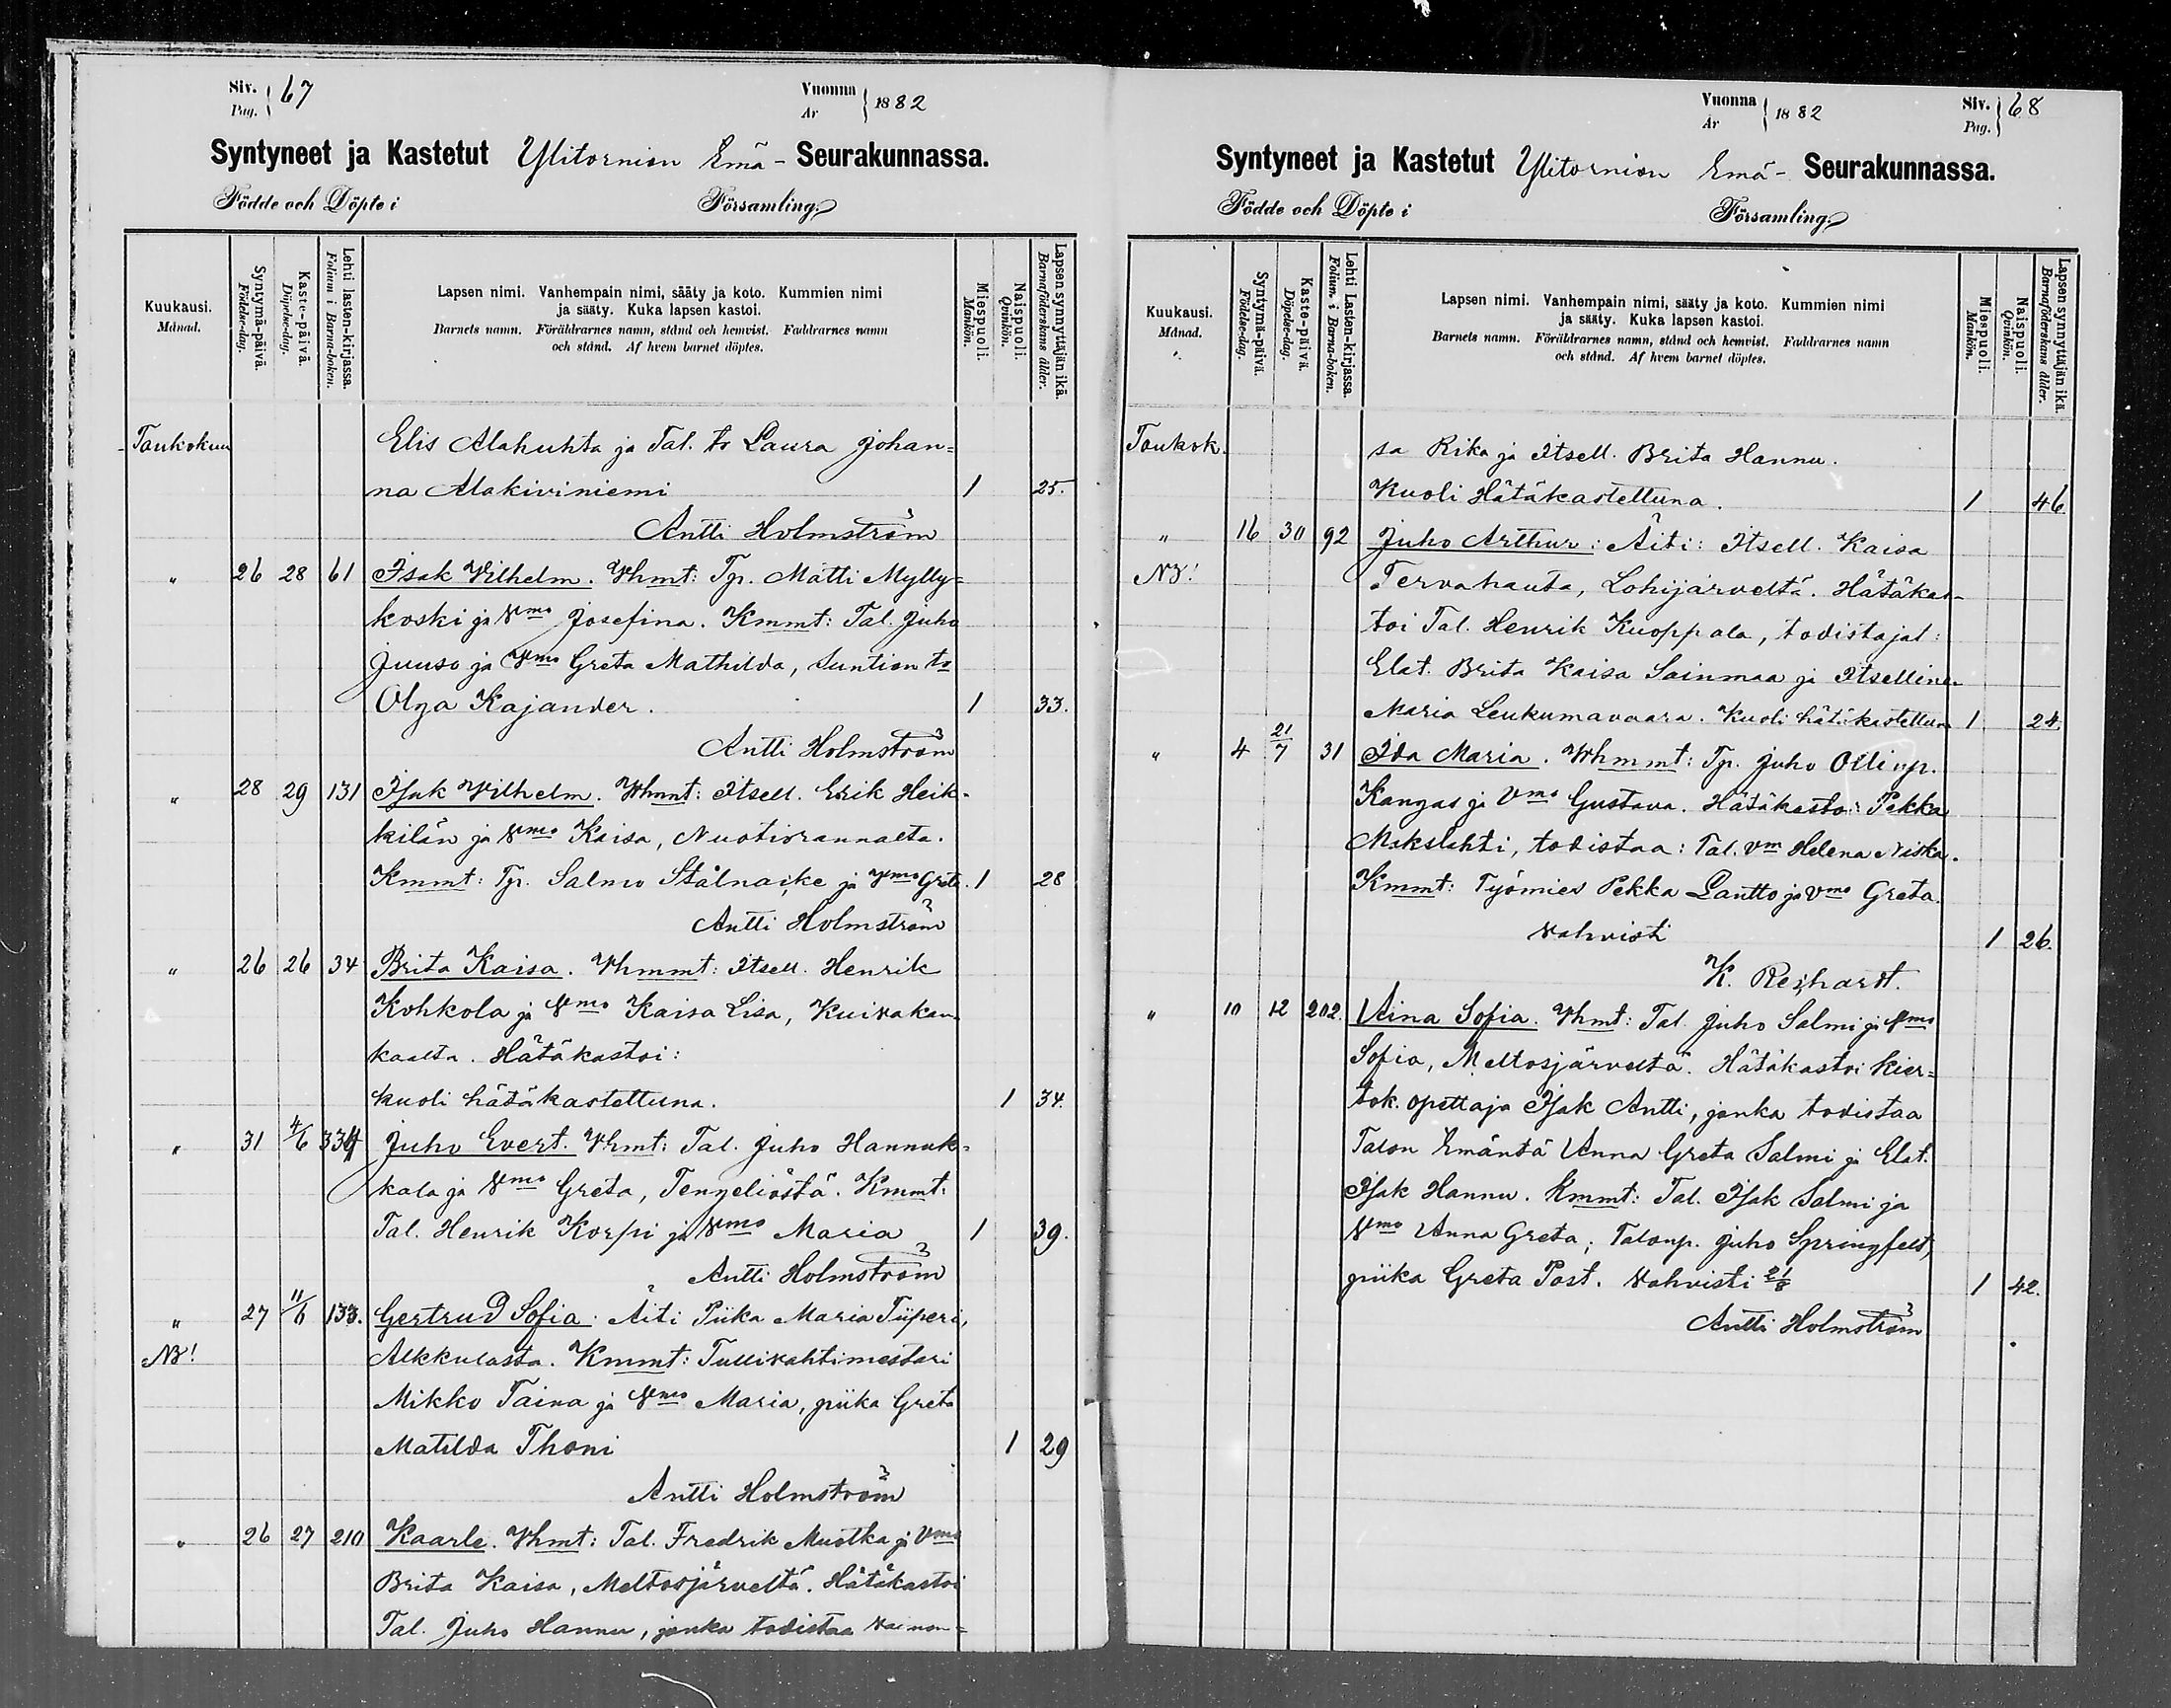 Siv. Pag. 67
Vuonna År 1882
Syntyneet ja Kastetut Ylitornion Emä- Seurakunnassa.
Födde och Döpte i Församling.
Kuukausi. Månad.
Syntymä-päivä. Födelse-dag.
Kaste-päivä. Döpelse-dag.
Lehti lasten-kirjassa. Folium i Barna-boken.
Lapsen nimi. Vanhempain nimi, sääty ja koto. Kummien nimi
ja sääty. Kuka lapsen kastoi.
Barnets namn. Föräldrarnes namn, stånd och hemvist. Faddrarnes namn
och stånd. Af hvem barnet döptes.
Miespuoli. Mankön.
Naispuoli. Qvinkön.
Lapsen synnyttäjän ikä. Barnaföderskans ålder.
Toukokuu Elis Alahuhta ja Tal. tr Laura Johan=
na Alakiviniemi 1 25.
Antti Holmström
" 26 28 61 Isak Vilhelm. Vhmt: Tp. Matti Mylly=
koski ja Vmo Josefina. Kmmt: Tal. Juho
Juuso ja Vmo Greta Mathilda, Suntion tr
Olga Kajander. 1 33.
Antti Holmström
" 28 29 131 Isak Vilhelm. Vhmt: Itsell. Erik Heik-
kilän ja Vmo Kaisa, Nuotiorannalta.
Kmmt: Tp. Salmo Stålnacke ja Vmo Greta. 1 28
Antti Holmström
" 26 26 34 Brita Kaisa. Vhmmt: Itsell. Henrik
Kohkola ja Vmo Kaisa Lisa, Kuivakan-
kaalta. Hätäkastoi:
kuoli hätäkastettuna. 1 34.
" 31 4/6 334 Juho Evert. Vhmt: Tal. Juho Hannuk=
kala ja Vmo Greta, Tengeliöstä. Kmmt:
Tal. Henrik Korpi ja Vmo Maria 1 39.
Antti Holmström
" 27 11/6 133. Gertrud Sofia. Äiti Piika Maria Tiiperi,
NB! Alkkulasta. Kmmt: Tullivahtimestari
Mikko Taina ja Vmo Maria, piika Greta
Matilda Thoni 1 29
Antti Holmström
" 26 27 210 Kaarle. Vhmt: Tal. Fredrik Muotka ja Vmo
Brita Kaisa, Meltosjärveltä. Hätäkastoi
Tal. Juho Hannu, jonka todistaa
Vuonna År 1882
Siv. Pag. 68
Syntyneet ja Kastetut Ylitornion Emä- Seurakunnassa.
Födde och Döpte i Församling.
Kuukausi. Månad.
Syntymä-päivä. Födelse-dag.
Kaste-päivä. Döpelse-dag.
Lehti Lasten-kirjassa. Folium i Barna-boken.
Lapsen nimi. Vanhempain nimi, sääty ja koto. Kummien nimi
ja sääty. Kuka lapsen kastoi.
Barnets namn. Föräldrarnes namn, stånd och hemvist. Faddrarnes namn
och stånd. Af hvem barnet döptes.
Miespuoli. Mankön.
Naispuoli. Qvinkön.
Lapsen synnyttäjän ikä. Barnaföderskans ålder.
Toukok. sa Rika ja Itsell. Brita Hannu.
Kuoli Hätäkastettuna. 1 46.
" 16 30 92 Juho Arthur: Äiti: Itsell. Kaisa
NB! Tervahauta, Lohijärveltä. Hätäkas-
toi Tal. Henrik Kuoppala, todistajat:
Elat. Brita Kaisa Sainmaa ja Itsellinen
Maria Leukumavaara. Kuoli hätäkastettuna 1 24.
" 4 21/7 31 Ida Maria. Vhmmt: Tp. Juho Ollinp.
Kangas ja Vmo Gustava. Hätäkastoi: Pekka
Makslahti, todistaa: Tal. vm Helena Niska.
Kmmt: Työmies Pekka Lantto ja Vmo Greta.
Vahvisti 1 26.
K. Reinhardt.
" 10 12 202. Aina Sofia. Vhmt: Tal. Juho Salmi ja Vmo
Sofia, Meltosjärveltä. Hätäkastoi Kier=
tok. opettaja Isak Antti, jonka todistaa
Talon Emäntä Anna Greta Salmi ja Elat.
Isak Hannu. Kmmt: Tal. Isak Salmi ja
Vmo Anna Greta; Talonp. Juho Springfelt,
piika Greta Post. Vahvisti 21/8 1 42.
Antti Holmström